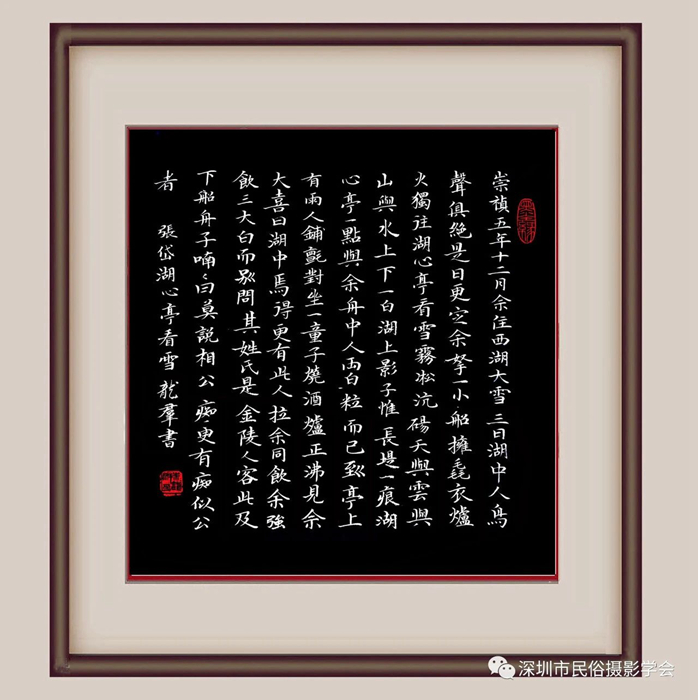 崇禎五年十二月余住西湖大雪三日湖中人鳥
聲俱絶是日更定余拏一小船擁毳衣爐
火獨往湖心亭看雪霧凇沆碭天與雲與
山與水上下一白湖上影子惟長堤一痕湖
心亭一點與余舟中人兩白粒而已到亭上
有兩人鋪氈對坐一童子燒酒爐正沸見余
大喜曰湖中焉得更有此人拉余同飲余強
飲三大白而別問其姓氏是金陵人客此及
下船舟子喃〻曰莫説相公痴更有痴似公
者 張岱湖心亭看雪 龍羣書
深圳市民俗摄影学会